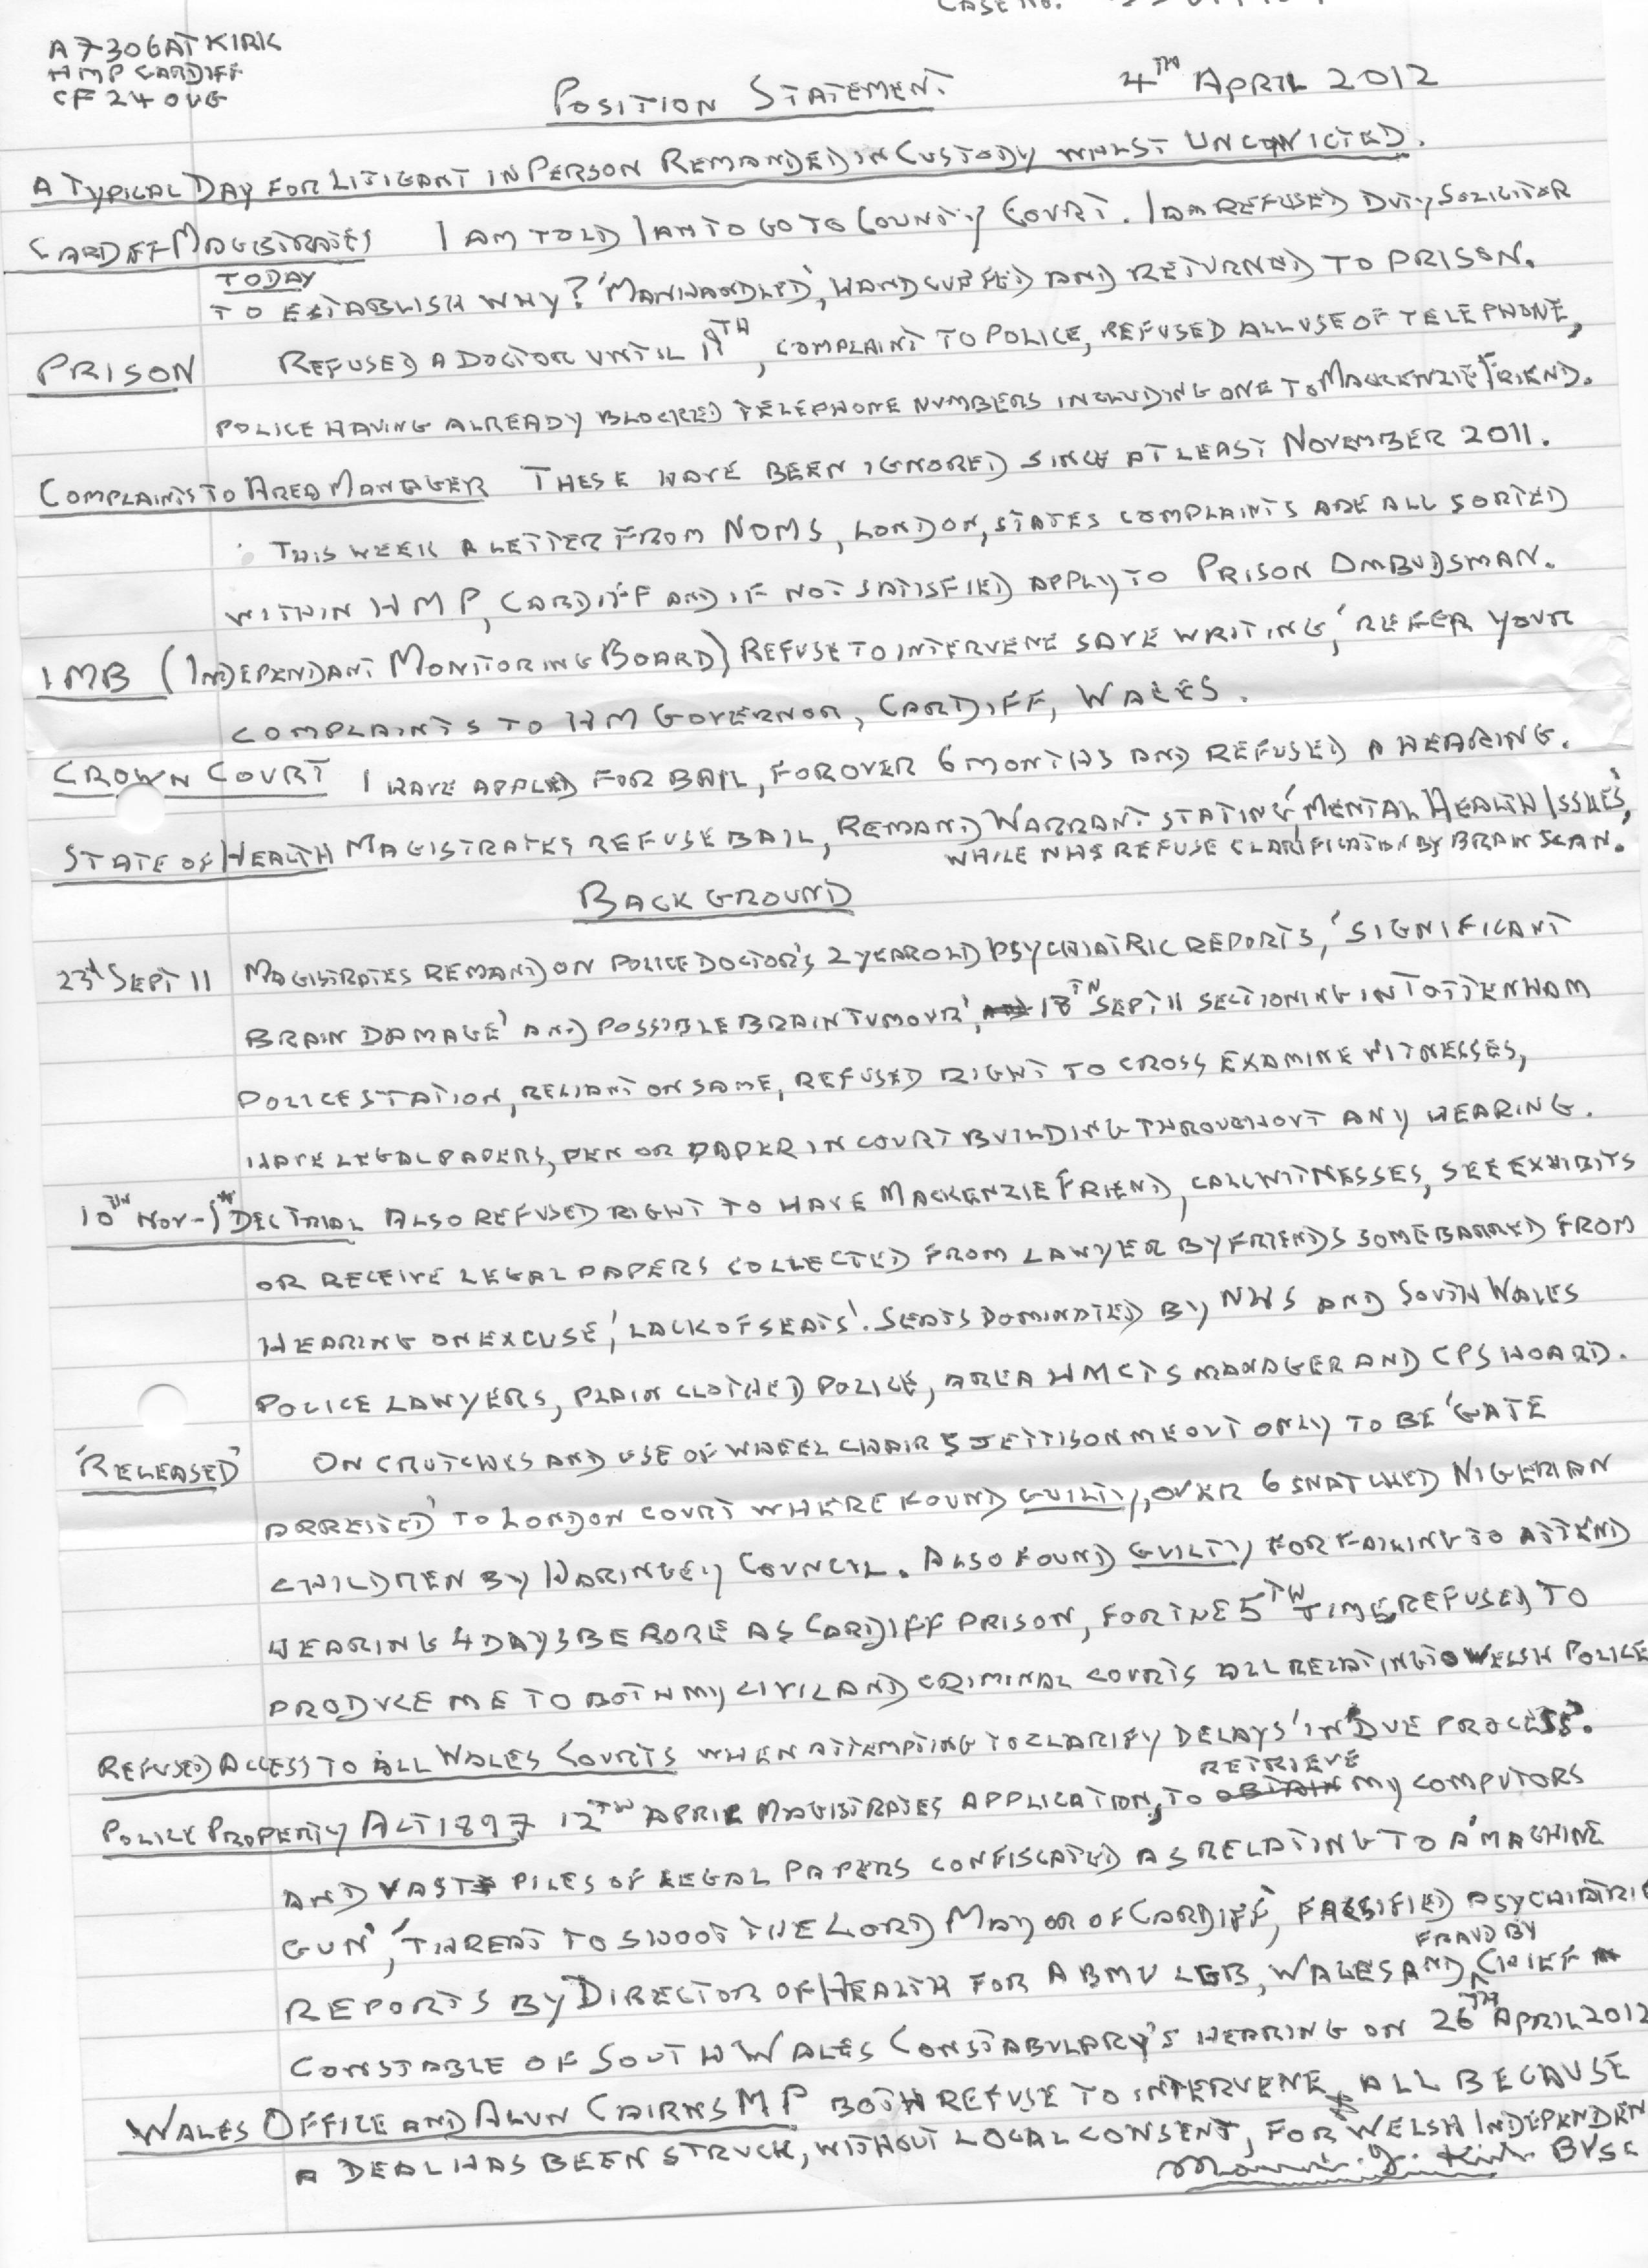 CASE NO.
A7306AT KIRK
HMP CARDIFF
CF24 0UG
POSITION STATEMENT.
4TH APRIL 2012
A TYPICAL DAY FOR LITIGANT IN PERSON REMANDED IN CUSTODY WHILST UNCONVICTED.
CARDIFF MAGISTRATES I AM TOLD I AM TO GO TO COUNTY COURT. I AM REFUSED DUTY SOLICITOR
TODAY
TO ESTABLISH WHY? 'MANHANDLED', HANDCUFFED AND RETURNED TO PRISON.
PRISON REFUSED A DOCTOR UNTIL 11TH, COMPLAINT TO POLICE, REFUSED ALL USE OF TELEPHONE,
POLICE HAVING ALREADY BLOCKED TELEPHONE NUMBERS INCLUDING ONE TO MACKENZIE FRIEND.
COMPLAINTS TO AREA MANAGER THESE HAVE BEEN IGNORED SINCE AT LEAST NOVEMBER 2011.
THIS WEEK A LETTER FROM NOMS, LONDON, STATES COMPLAINTS ARE ALL SORTED
WITHIN HMP, CARDIFF AND IF NOT SATISFIED APPLY TO PRISON OMBUDSMAN.
IMB (INDEPENDANT MONITORING BOARD) REFUSE TO INTERVENE SAVE WRITING, 'REFER YOUR
COMPLAINTS TO HM GOVERNOR, CARDIFF, WALES.
CROWN COURT I HAVE APPLIED FOR BAIL, FOR OVER 6 MONTHS AND REFUSED A HEARING.
STATE OF HEALTH MAGISTRATES REFUSE BAIL, REMAND WARRANT STATING 'MENTAL HEALTH ISSUES',
WHILE NHS REFUSE CLARIFICATION BY BRAIN SCAN.
BACKGROUND
23rd SEPT 11 MAGISTRATES REMAND ON POLICE DOCTOR'S 2 YEAR OLD PSYCHIATRIC REPORTS, 'SIGNIFICANT
BRAIN DAMAGE' AND POSSIBLE BRAIN TUMOUR', 18TH SEPT 11 SECTIONING IN TOTTENHAM
POLICE STATION, RELIANT ON SAME, REFUSED RIGHT TO CROSS EXAMINE WITNESSES,
HAVE LEGAL PAPERS, PEN OR PAPER IN COURT BUILDING THROUGHOUT ANY HEARING.
10TH NOV - 1ST DEC TRIAL ALSO REFUSED RIGHT TO HAVE MACKENZIE FRIEND, CALL WITNESSES, SEE EXHIBITS
OR RECEIVE LEGAL PAPERS COLLECTED FROM LAWYER BY FRIENDS SOME BARRED FROM
HEARING ON EXCUSE, 'LACK OF SEATS'. SEATS DOMINATED BY NHS AND SOUTH WALES
POLICE LAWYERS, PLAIN CLOTHED POLICE, AREA HMCTS MANAGER AND CPS HOARD.
'RELEASED' ON CRUTCHES AND USE OF WHEEL CHAIR 5 JETTISON ME OUT ONLY TO BE 'GATE
ARRESTED' TO LONDON COURT WHERE FOUND GUILTY, OVER 6 SNATCHED NIGERIAN
CHILDREN BY HARINGEY COUNCIL. ALSO FOUND GUILTY FOR FAILING TO ATTEND
HEARING 4 DAYS BEFORE AS CARDIFF PRISON, FOR THE 5TH TIME REFUSED TO
PRODUCE ME TO BOTH MY CIVIL AND CRIMINAL COURTS ALL RELATING TO WELSH POLICE
REFUSED ACCESS TO ALL WALES COURTS WHEN ATTEMPTING TO CLARIFY DELAYS 'IN DUE PROCESS'.
RETRIEVE
POLICE PROPERTY ACT 1897 12TH APRIL MAGISTRATES APPLICATION, TO OBTAIN MY COMPUTORS
AND VAST PILES OF LEGAL PAPERS CONFISCATED AS RELATING TO A 'MACHINE
GUN', 'THREAT TO SHOOT THE LORD MAYOR OF CARDIFF', FALSIFIED PSYCHIATRIC
FRAUD BY
REPORTS BY DIRECTOR OF HEALTH FOR ABMU LGB, WALES AND CHIEF
CONSTABLE OF SOUTH WALES CONSTABULARY'S HEARING ON 26TH APRIL 2012
WALES OFFICE AND ALUN CAIRNS MP BOTH REFUSE TO INTERVENE, ALL BECAUSE
A DEAL HAS BEEN STRUCK, WITHOUT LOCAL CONSENT, FOR WELSH INDEPENDEN
Maurice J. Kirk BVSC